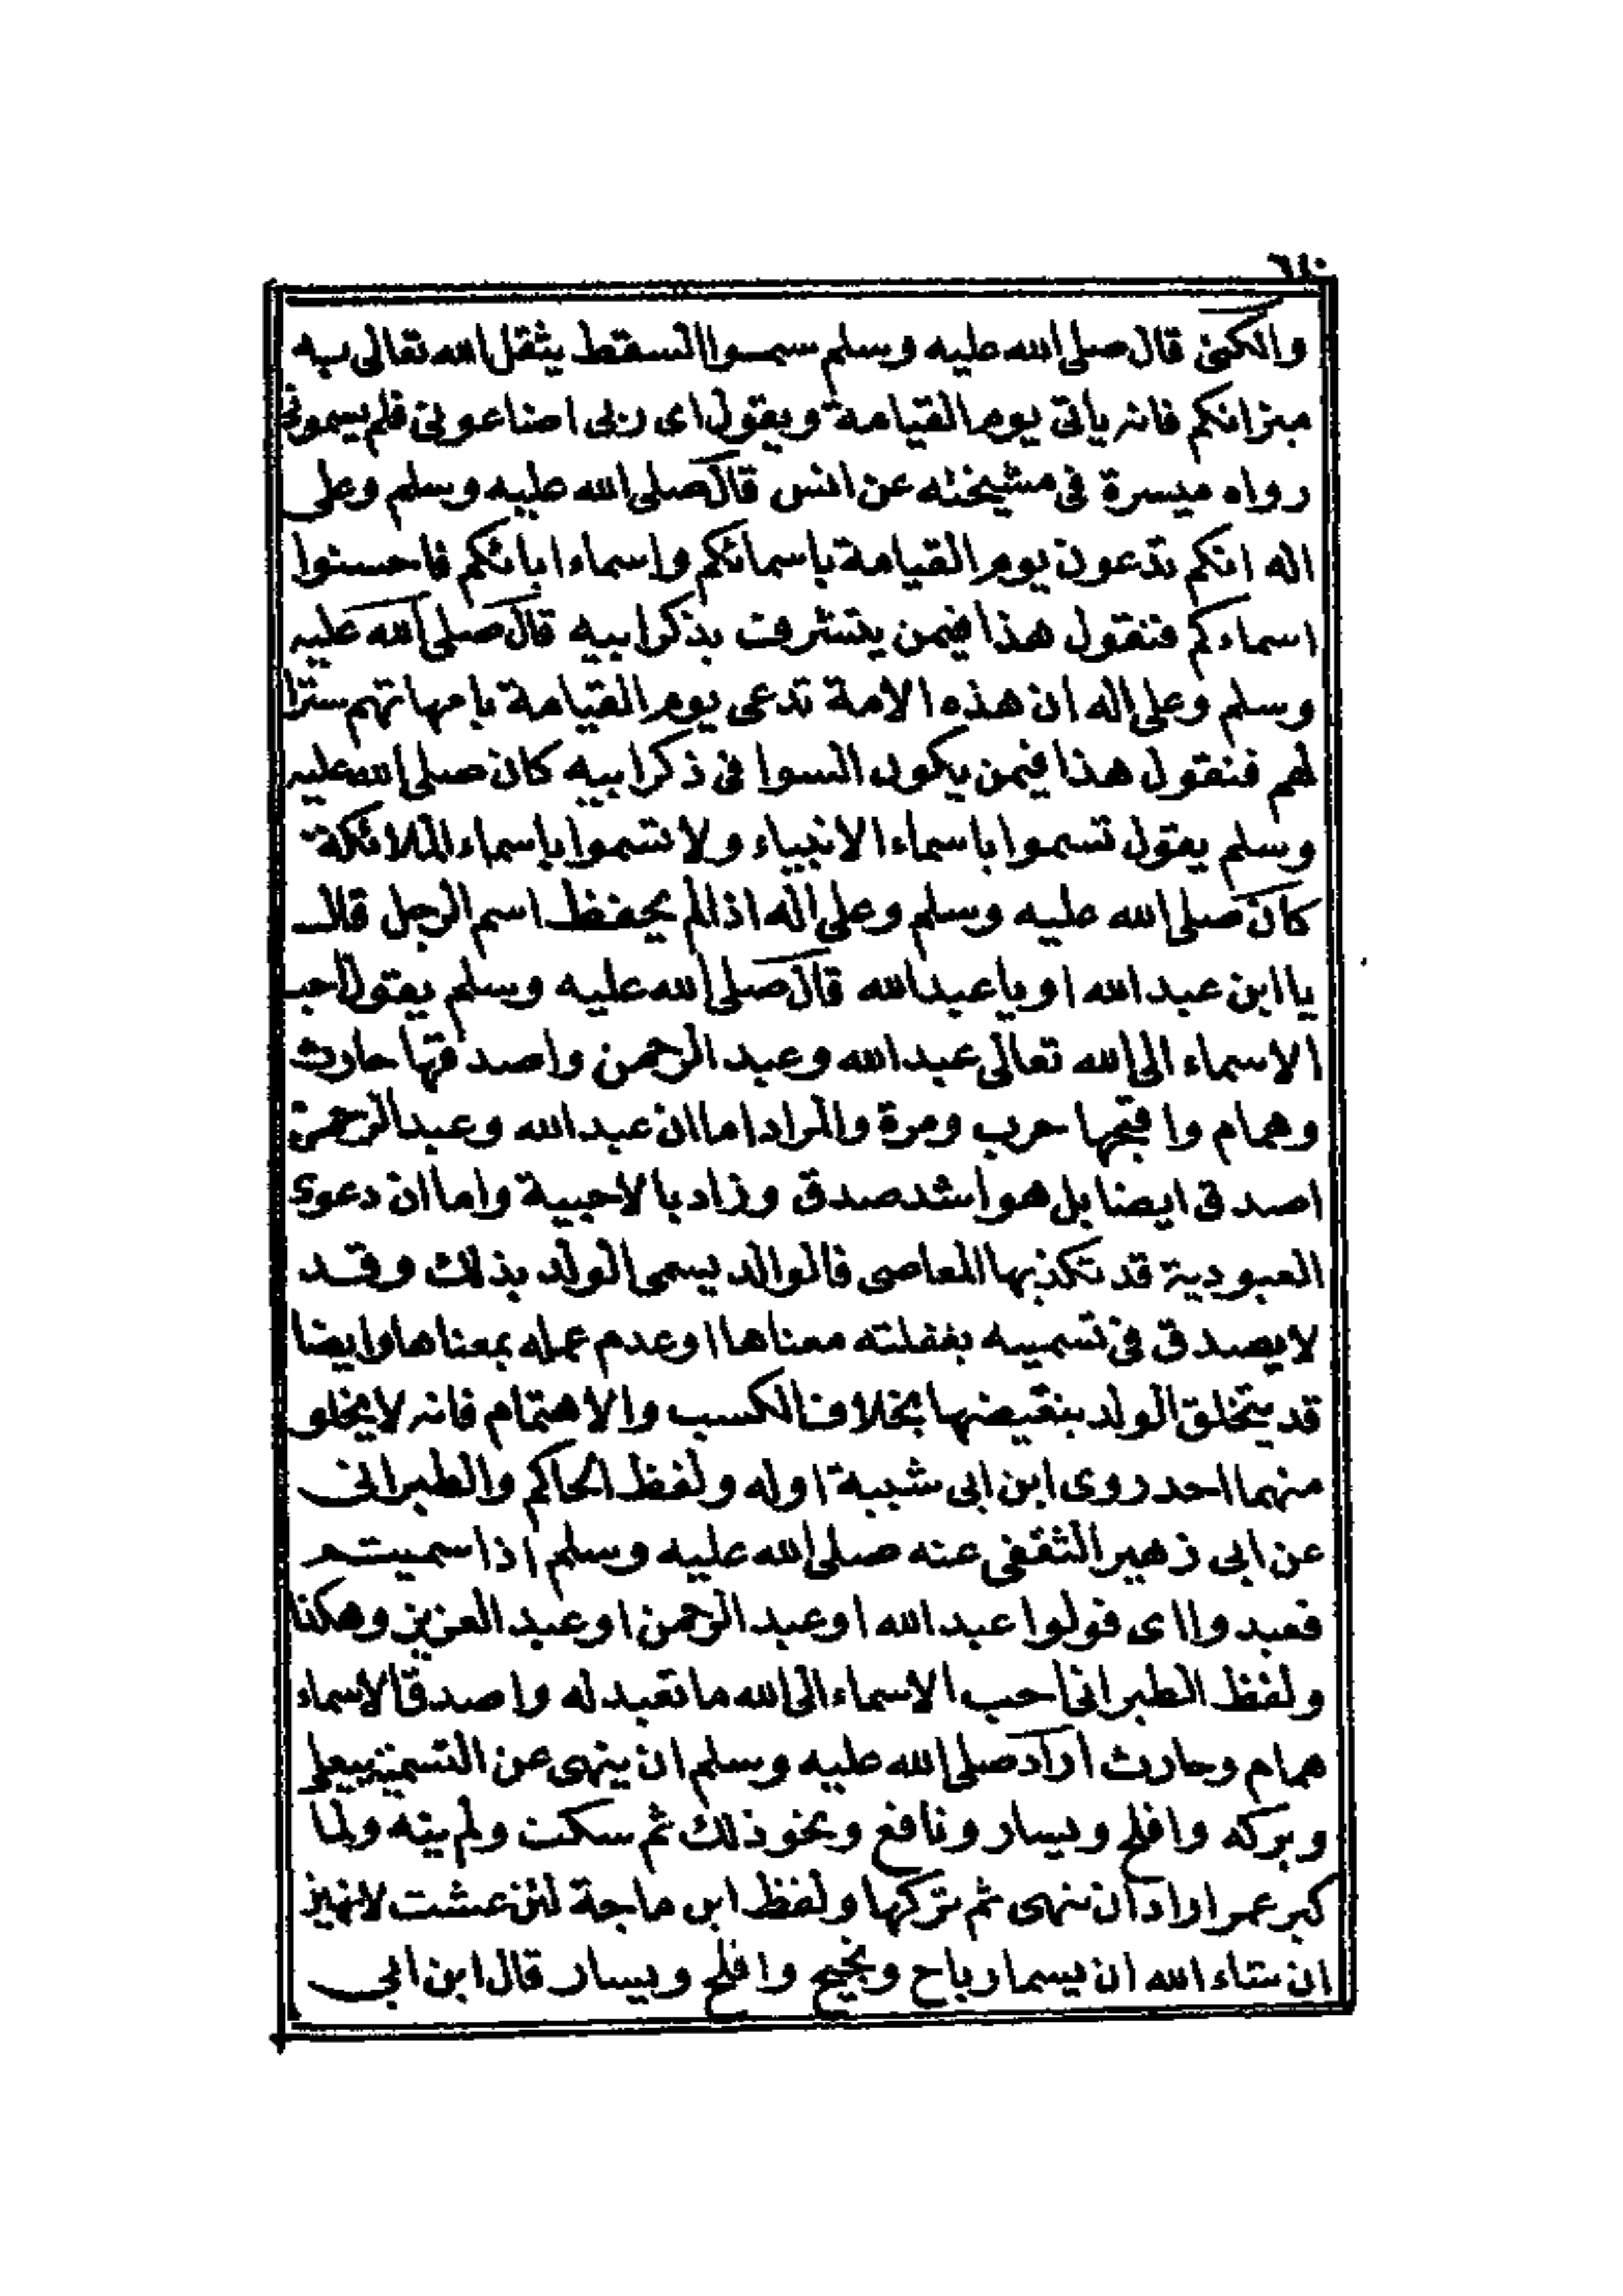 والكنى قال صلى الله عليه وسلم سموا السقط يثقل الله تعالى به
ميزانكم فانه ياتى يوم القيامة ويقول اى ربى اضاعونى فلم يسمونى
رواه ميسرة فى مشيخته عن انس قال صلى الله عليه وسلم وعلى
اله انكم تدعون يوم القيامة باسمائكم واسماء ابائكم فاحسنوا
اسماءكم فنقول هذا فيمن يتشرف بذكر ابيه قال صلى الله عليه
وسلم وعلى اله ان هذه الامة تدعى يوم القيامة بامهاتهم سترا
لهم فنقول هذا فيمن يكون السوا فى ذكر ابيه كان صلى الله عليه
وسلم يقول تسموا باسماء الانبياء ولا تسموا باسماء الملائكة
كان صلى الله عليه وسلم وعلى اله اذا لم يحفظ اسم الرجل قال
يا ابن عبد الله او يا عبد الله قال صلى الله عليه وسلم يقول احب
الاسماء الى الله تعالى عبد الله وعبد الرحمن واصدقها حارث
وهمام واقبحها حرب ومرة والمراد اما ان عبد الله وعبد الرحمن
اصدق ايضا بل هو اشد صدق وزاد بالاحبية واما ان دعوى
العبودية قد تكذبها المعاصى فالوالد يسمى الولد بذلك وقد
لا يصدق فى تسميه بغفلته معناها او عدم عمله بمعناها وايضا
قد يتخلق الولد بنقيضها بخلاف الكسب والاهتمام فانه لا يخلو
منهما احد روى ابن ابى شيبة اوله ولفظ الحاكم والطبرانى
عن ابى زهير الثقفى عنه صلى الله عليه وسلم اذا سميتم
فعبدوا اى قولوا عبد الله او عبد الرحمن او عبد العزيز وهكذا
ولفظ الطبرانى احب الاسماء الى الله ما تعبد له واصدق الاسماء
همام وحارث اراد صلى الله عليه وسلم ان ينهى عن التسمية بيعلى
وبركه وافلح ويسار ونافع ونحو ذلك ثم سكت ولم ينه ولما
كبر عمر اراد ان ينهى ثم تركها ولفظ ابن ماجة لئن عشت لانهين
ان شاء الله ان يسما رباح ونجيح وافلح ويسار قال ابن ابى